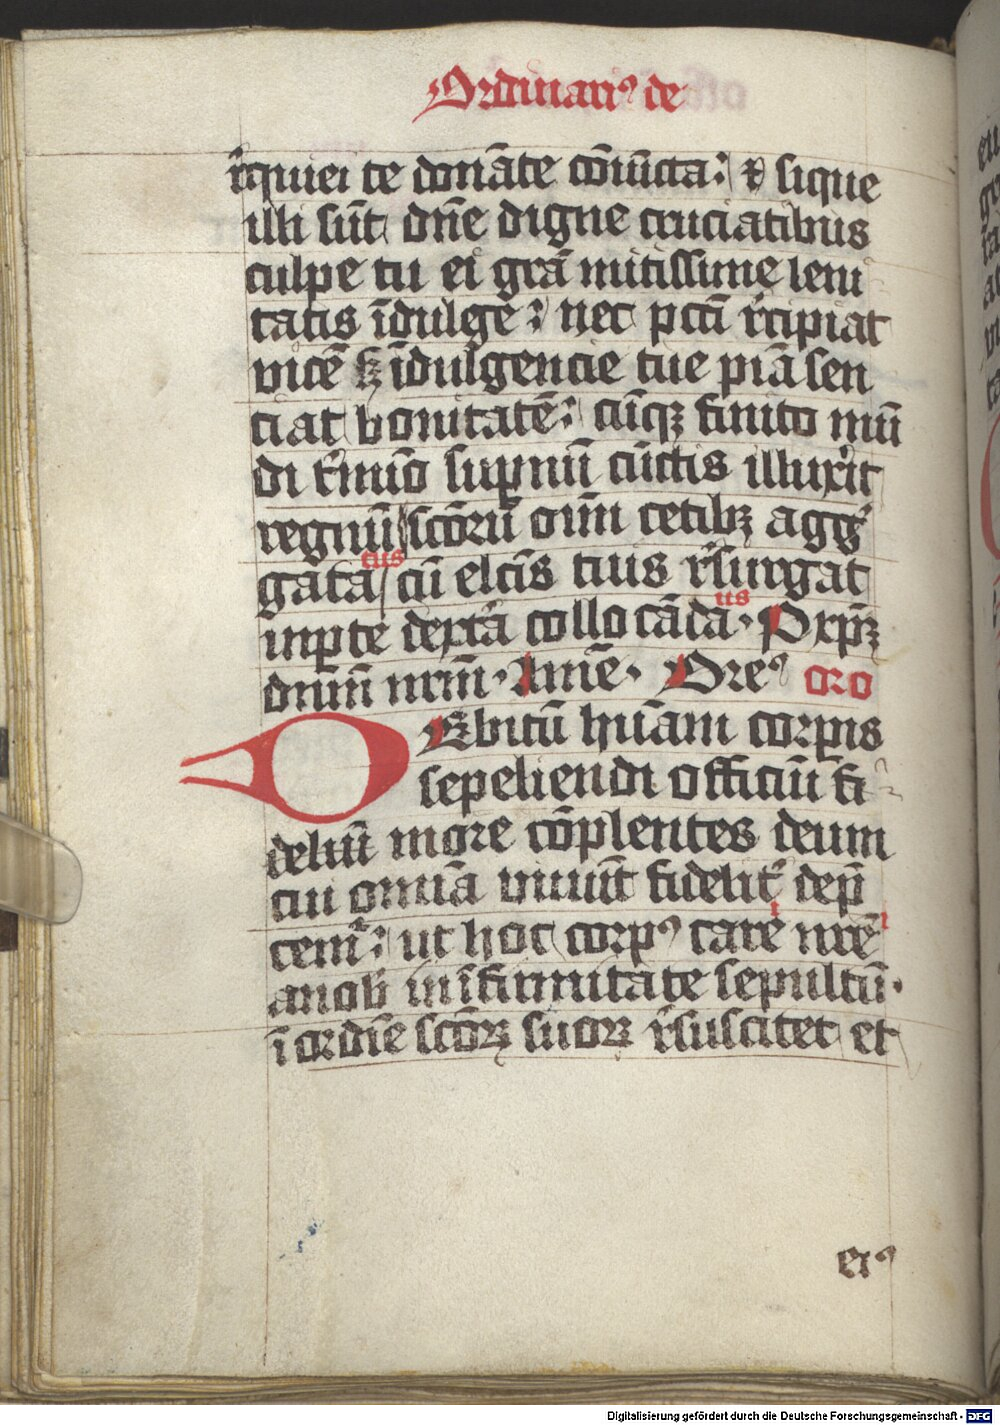 Ordinariꝰ de
req̇uiei te donāte cōiūcta: ⁊ sique
illi sūt dn̄e digne cruciatibus
culpe tu ei gr̄a mitissime leni
tatis īdulge: nec pctī rēcipiat
vicē sꝫ īdulgencie tue piā sen
ciat bonitatē: cūqꝫ finito mū
di t̄mīo supnū cūctis illuxit
regnū scōrū oīm cetibꝫ agḡ
gata cū elcīs tuis r̄surgat
tus
inꝑte dextā collocāda. P xpm̄
us
dnm̄ nrm̄. Amē. Oreꝰ oro
DEbitū hūani corꝑis
sepeliendi officiū fi
deliū more cōplentes deum
cui omīa viuūt fideliť dep̄
cemᷣ: ut hoc corpꝰ care nrē
i
i
anob̄ in īfirmitate sepultū.
ī ordīe scōꝝ suoꝝ r̄suscitet et
eiꝰ
Digitalisierung gefördert durch die Deutsche Forschungsgemeinschaft - DFG